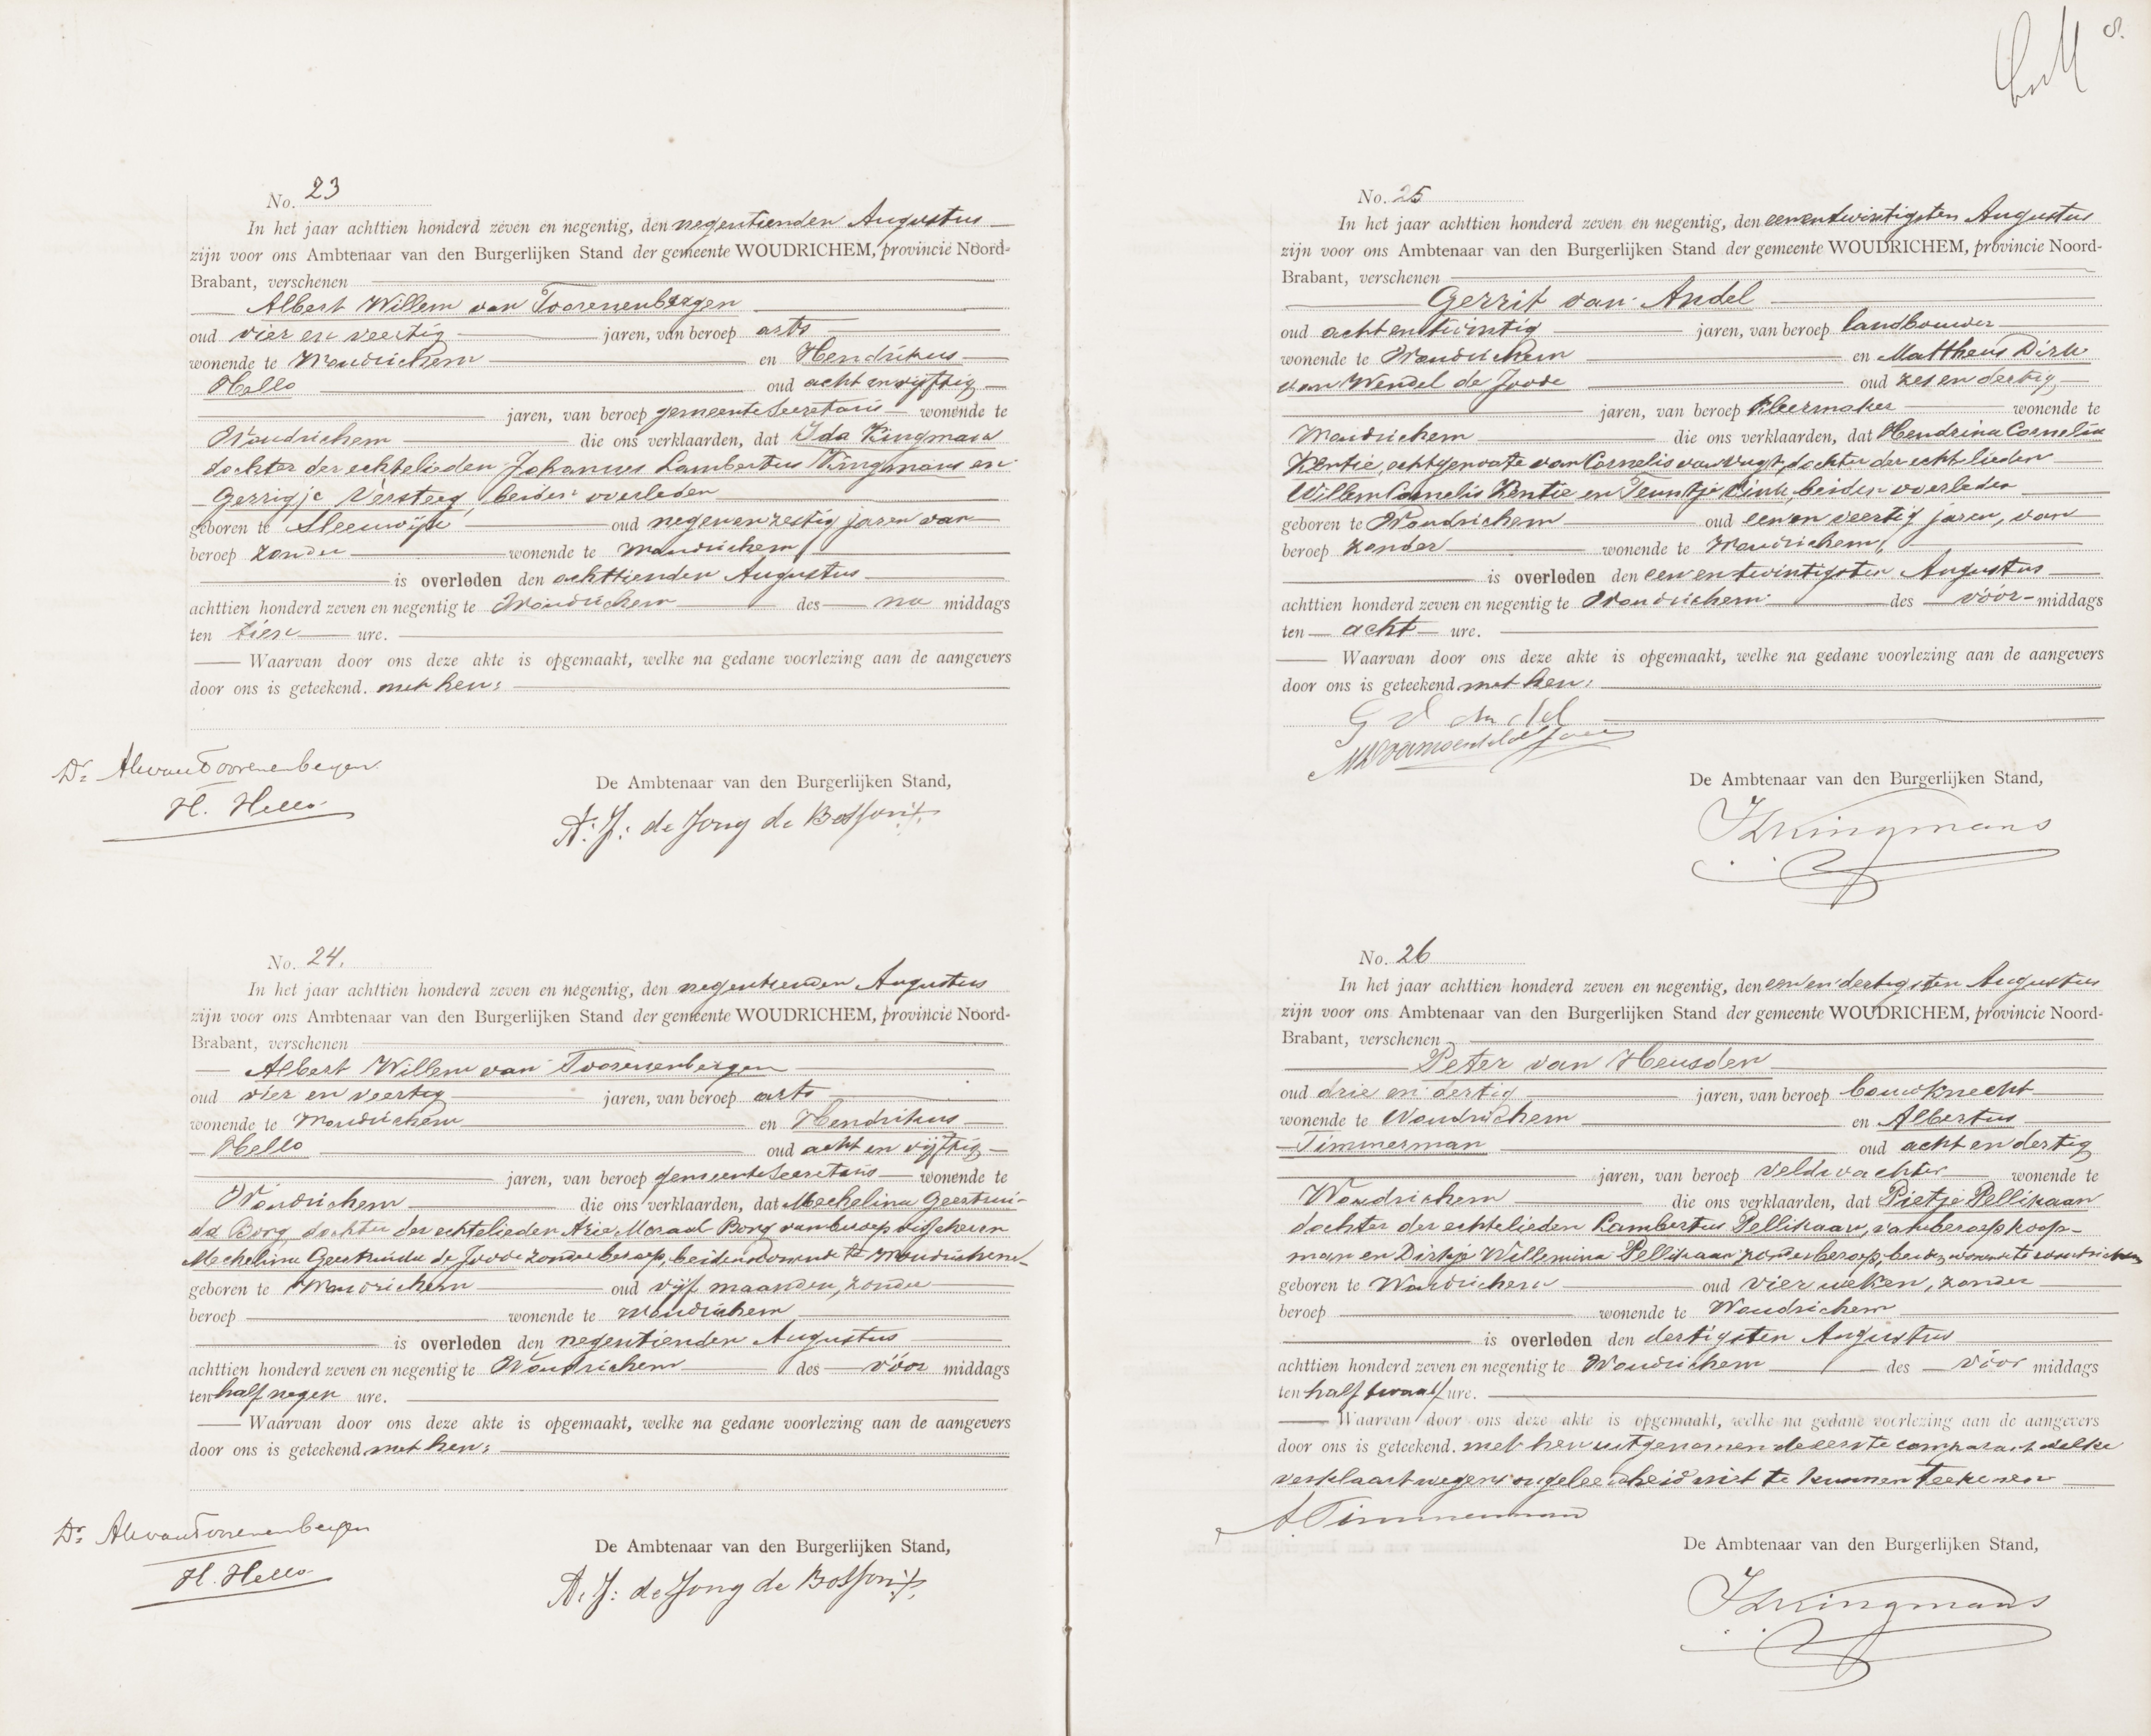 8.
No. 23
In het jaar achttien honderd zeven en negentig, den negentienden Augustus
zijn voor ons Ambtenaar van den Burgerlijken Stand der gemeente WOUDRICHEM, provincie Noord-
Brabant, verschenen
Albert Willem van Toorenenbergen
oud vier en veertig jaren, van beroep arts
wonende te Woudrichem en Hendrikus
Hello oud acht en vijftig
jaren, van beroep gemeente Secretaris wonende te
Woudrichem die ons verklaarden, dat Ida Kingmans
dochter der echtelieden Johannes Lambertus Kingmans en
Gerrigje Versteeg, beiden overleden
geboren te Sleeuwijk oud negenenzestig jaren van
beroep zonder wonende te Woudrichem,
is overleden den achttienden Augustus
achttien honderd zeven en negentig te Woudrichem des na middags
ten tien ure.
Waarvan door ons deze akte is opgemaakt, welke na gedane voorlezing aan de aangevers
door ons is geteekend. met hen:
Dr. AWvanToorenenbergen
H. Hello
De Ambtenaar van den Burgerlijken Stand,
A. J: de Jong de Bosson
No. 24.
In het jaar achttien honderd zeven en negentig, den negentienden Augustus
zijn voor ons Ambtenaar van den Burgerlijken Stand der gemeente WOUDRICHEM, provincie Noord-
Brabant, verschenen
Albert Willem van Toorenenbergen
oud vier en veertig jaren, van beroep arts
wonende te Woudrichem en Hendrikus
Hello oud acht en vijftig
jaren, van beroep gemeente Secretaris wonende te
Woudrichem die ons verklaarden, dat Mechelina Geertrui-
da Borg dochter der echtelieden Arie Moraal Borg van beroep visscher en
Mechelina Geertruida de Joode zonder beroep, beiden wonende te Woudrichem
geboren te Woudrichem oud vijf maanden, zonder
beroep wonende te Woudrichem
is overleden den negentienden Augustus
achttien honderd zeven en negentig te Woudrichem des vóór middags
ten half negen ure.
Waarvan door ons deze akte is opgemaakt, welke na gedane voorlezing aan de aangevers
door ons is geteekend met hen:
Dr. AWvanToorenenbergen
H. Hello
De Ambtenaar van den Burgerlijken Stand,
A. J: de Jong de Bosson
No. 25
In het jaar achttien honderd zeven en negentig, den eenentwintigsten Augustus
zijn voor ons Ambtenaar van den Burgerlijken Stand der gemeente WOUDRICHEM, provincie Noord-
Brabant, verschenen
Gerrit van Andel
oud achtentwintig jaren, van beroep landbouwer
wonende te Woudrichem en Mattheus Dirk
van Wendel de Joode oud zes en dertig
jaren, van beroep kleermaker wonende te
Woudrichem die ons verklaarden, dat Hendrina Cornelia
Kentie, echtgenoote van Cornelis van Vugt, dochter der echtelieden
Willem Cornelis Kentie en Teuntje Vink, beiden overleden
geboren te Woudrichem oud een en veertig jaren, van
beroep zonder wonende te Woudrichem,
is overleden den een en twintigsten Augustus
achttien honderd zeven en negentig te Woudrichem des vóór-middags
ten acht ure.
Waarvan door ons deze akte is opgemaakt, welke na gedane voorlezing aan de aangevers
door ons is geteekend met hen:
G v Andel
MD van Wendel de Joode
De Ambtenaar van den Burgerlijken Stand,
JLKingmans
No. 26
In het jaar achttien honderd zeven en negentig, den een en dertigsten Augustus
zijn voor ons Ambtenaar van den Burgerlijken Stand der gemeente WOUDRICHEM, provincie Noord-
Brabant, verschenen
Peter van Heusden
oud drie en dertig jaren, van beroep bouwknecht
wonende te Woudrichem en Albertus
Timmerman oud acht en dertig
jaren, van beroep veldwachter wonende te
Woudrichem die ons verklaarden, dat Pietje Pellikaan
dochter der echtelieden Lambertus Pellikaan, van beroep koop-
man en Dirkje Willemina Pellikaan zonder beroep, beiden wonende te Woudrichem
geboren te Woudrichem oud vier weken, zonder
beroep wonende te Woudrichem
is overleden den dertigsten Augustus
achttien honderd zeven en negentig te Woudrichem des vóór middags
ten half twaalf ure.
Waarvan door ons deze akte is opgemaakt, welke na gedane voorlezing aan de aangevers
door ons is geteekend. met hen uitgenomen de eerste comparant welke
verklaart wegens ongeleerdheid niet te kunnen teekenen
A Timmerman
De Ambtenaar van den Burgerlijken Stand,
JLKingmans